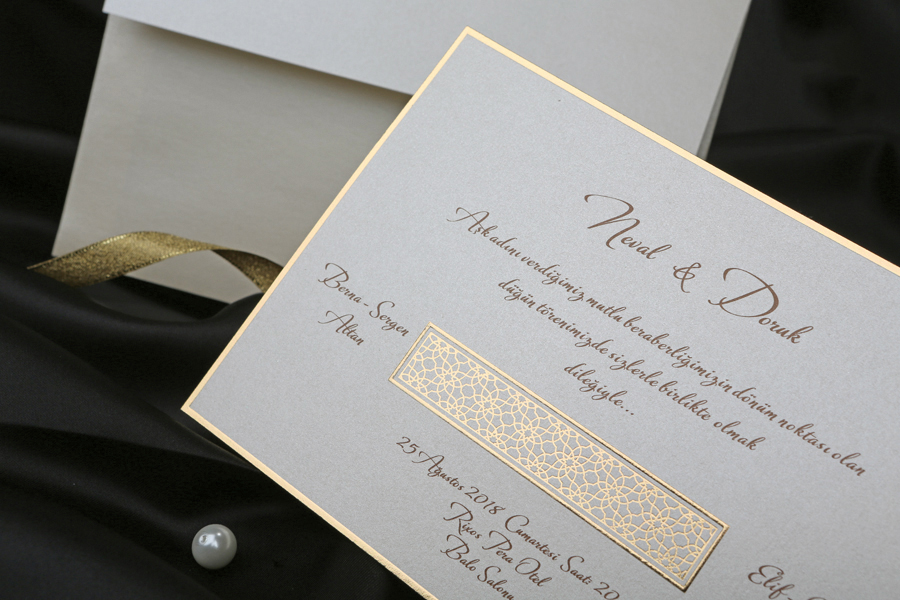 Neval & Doruk
Aşkadını verdiğimiz mutlu beraberliğimizin dönüm noktası olan
düğün törenimizde sizlerle birlikte olmak
dileğiyle...
Berna - Sergen
Altan
25 Ağustos 2018 Cumartesi Saat: 20
Rixos Pera Otel
Balo Salonu
Elif-